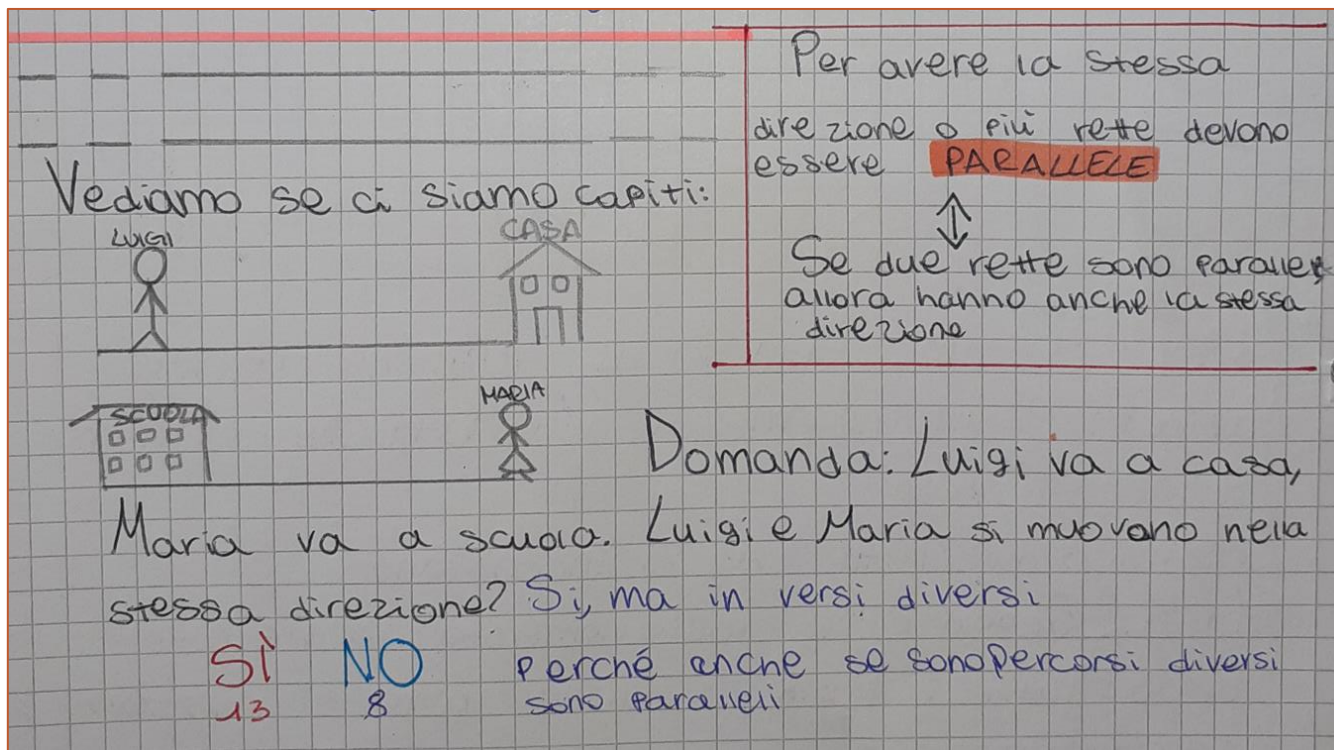 Per avere la stessa
direzione o più rette devono
essere PARALLELE
Se due rette sono paralle
allora hanno anche la stessa
direzione
Vediamo se ci siamo capiti:
LUIGI
CASA
SCUOLA
MARIA
Domanda: Luigi va a casa,
Maria va a scuola. Luigi e Maria si muovono nella
stessa direzione? Si, ma in versi diversi
SÌ NO perché anche se sono percorsi diversi
13 8 sono paralleli